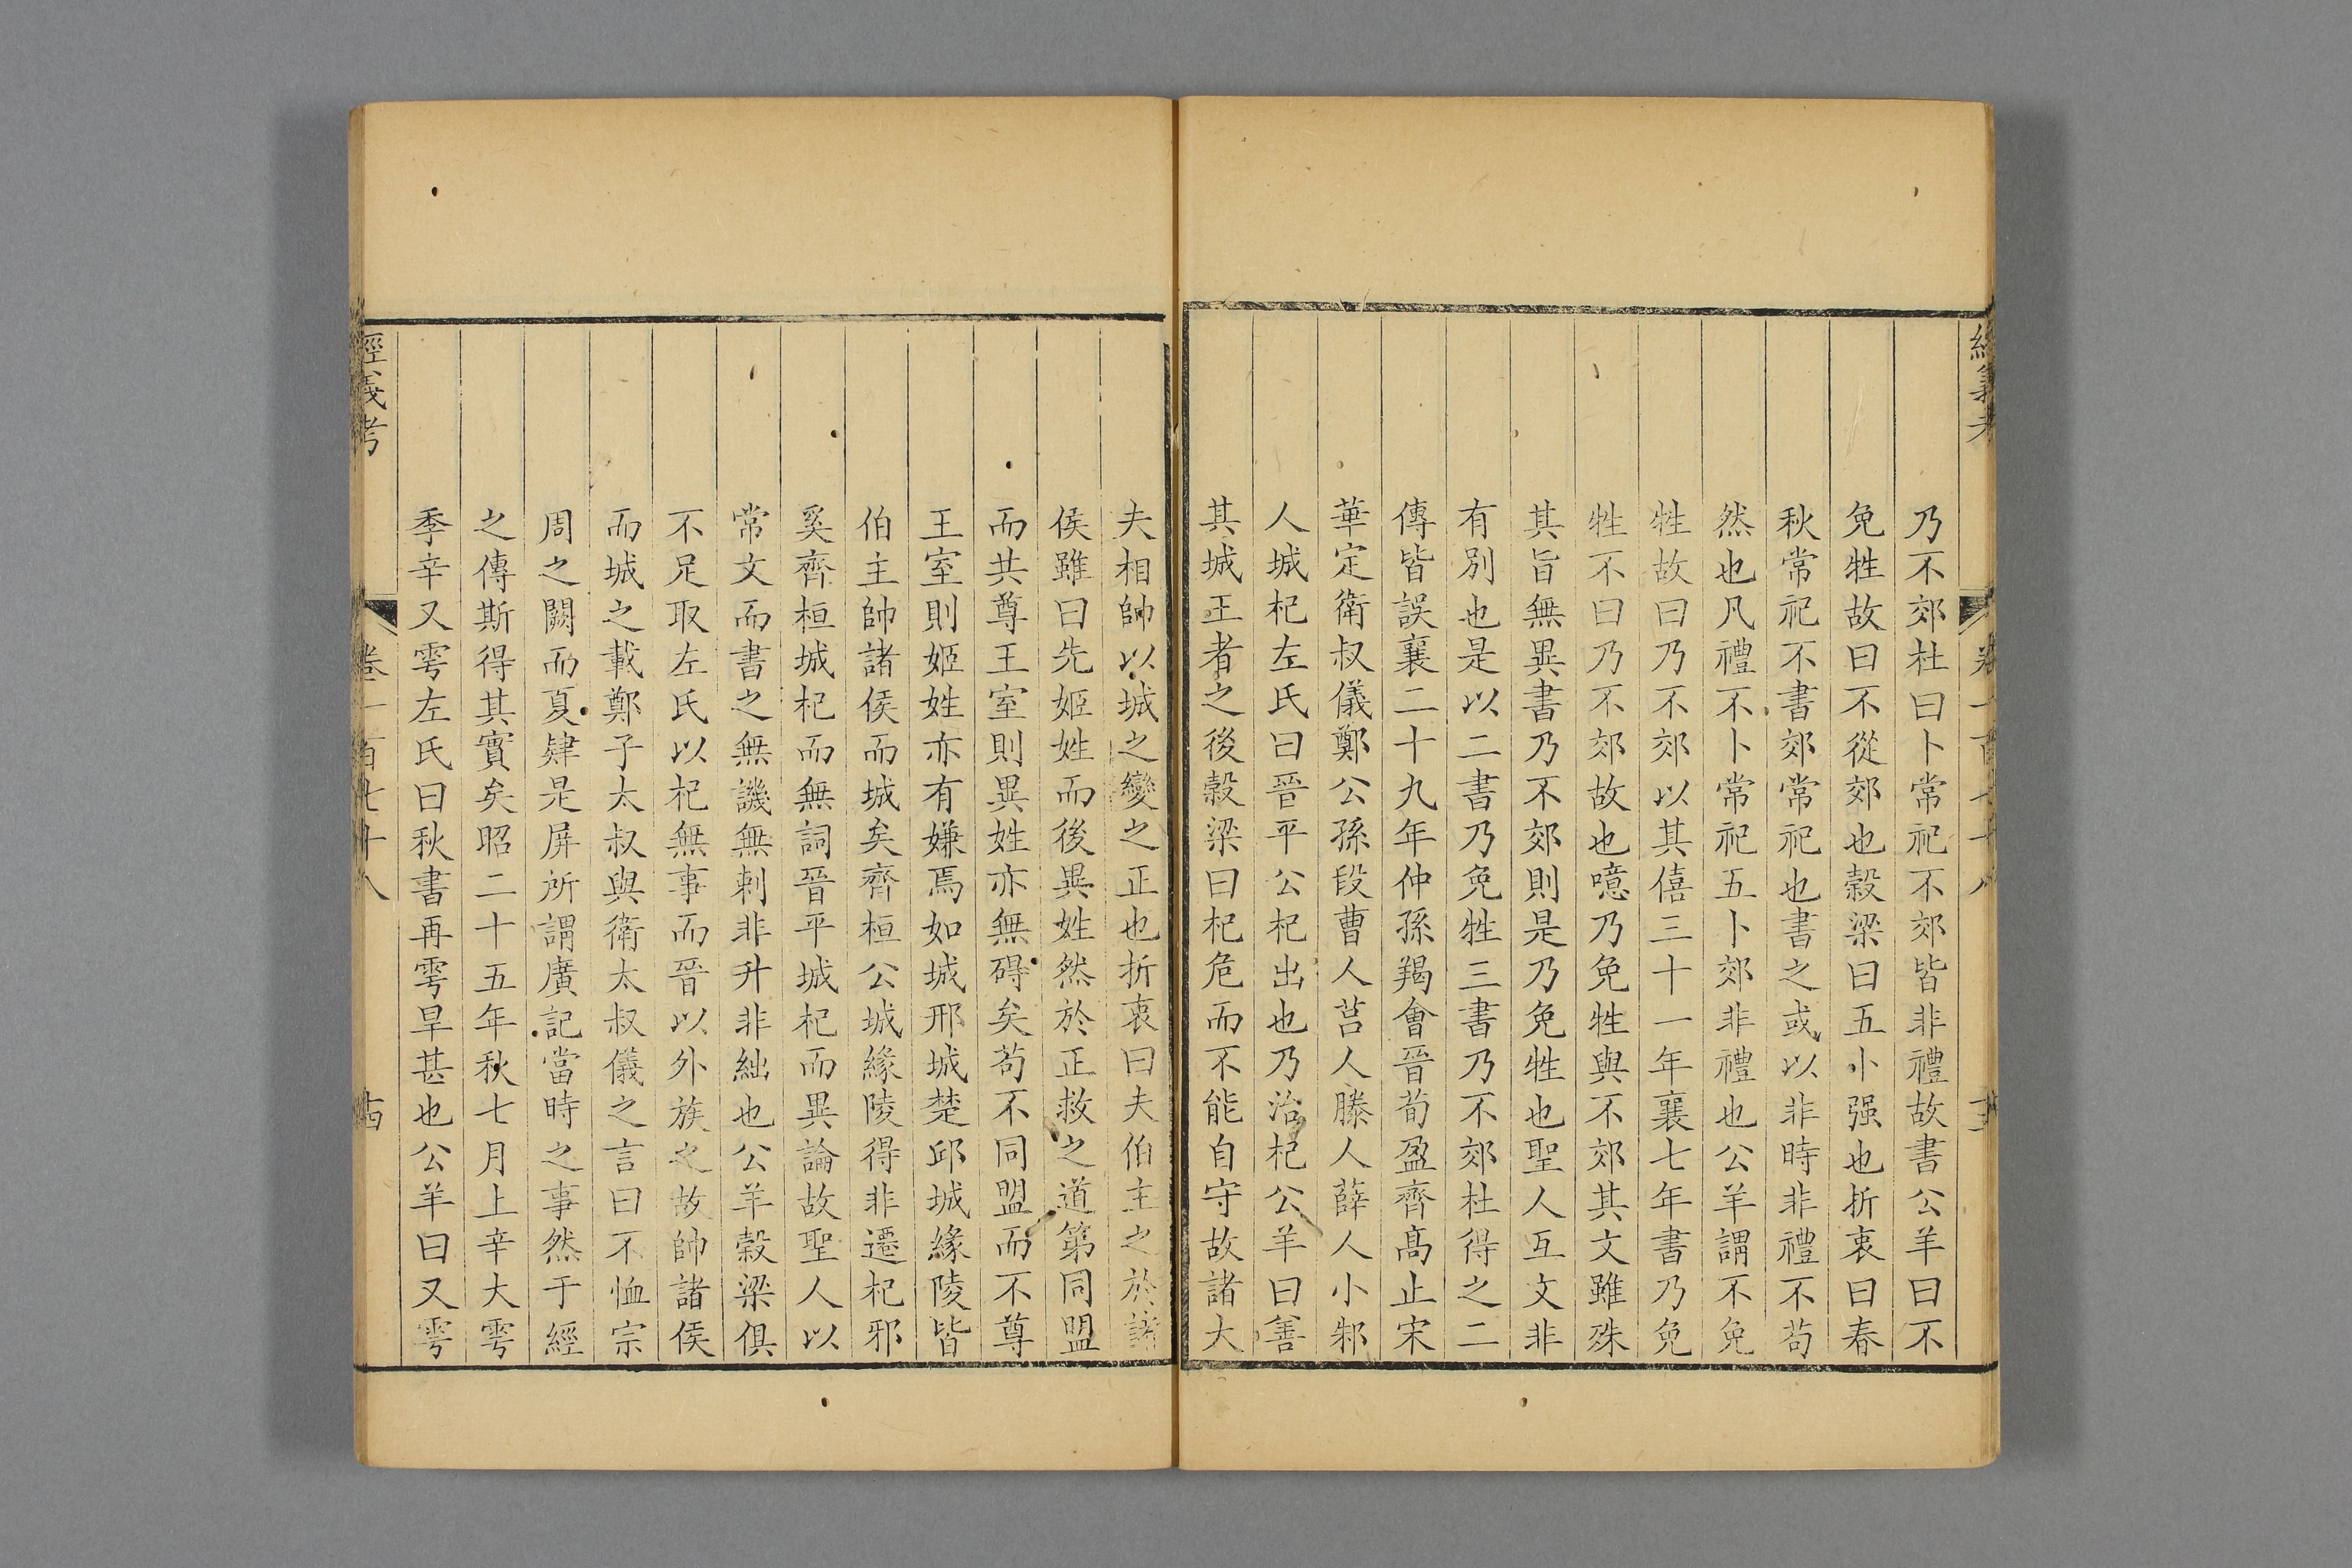 乃不郊杜曰卜常祀不郊皆非禮故書公羊曰不
免牲故曰不從郊也穀梁曰五卜强也折衷曰春
秋常祀不書郊常祀也書之或以非時非禮不苟
然也凡禮不卜常祀五卜郊非禮也公羊謂不免
牲故曰乃不郊以其僖三十一年襄七年書乃免
牲不曰乃不郊故也噫乃免牲與不郊其文雖殊
其旨無異書乃不郊則是乃免牲也聖人互文非
有別也是以二書乃免牲三書乃不郊杜得之二
傳皆誤襄二十九年仲孫羯會晉荀盈齊髙止宋
華定衛叔儀鄭公孫段曹人莒人滕人薛人小邾
人城杞左氏曰晉平公杞出也乃治杞公羊曰善
其城王者之後穀梁曰杞危而不能自守故諸大
夫相帥以城之變之正也折衷曰夫伯主之於諸
侯雖曰先姬姓而後異姓然於正救之道第同盟
而共尊王室則異姓亦無碍矣苟不同盟而不尊
王室則姬姓亦有嫌焉如城邢城楚邱城緣陵皆
伯主帥諸侯而城矣齊桓公城緣陵得非遷杞邪
奚齊桓城杞而無詞晉平城杞而異論故聖人以
常文而書之無譏無刺非升非絀也公羊穀梁俱
不足取左氏以杞無事而晉以外族之故帥諸侯
而城之載鄭子太叔與衛太叔儀之言曰不恤宗
周之闕而夏肄是屏所謂廣記當時之事然于經
之傳斯得其實矣昭二十五年秋七月上辛大雩
季辛又雩左氏曰秋書再雩旱甚也公羊曰又雩
經義考
卷一百七十八
十四